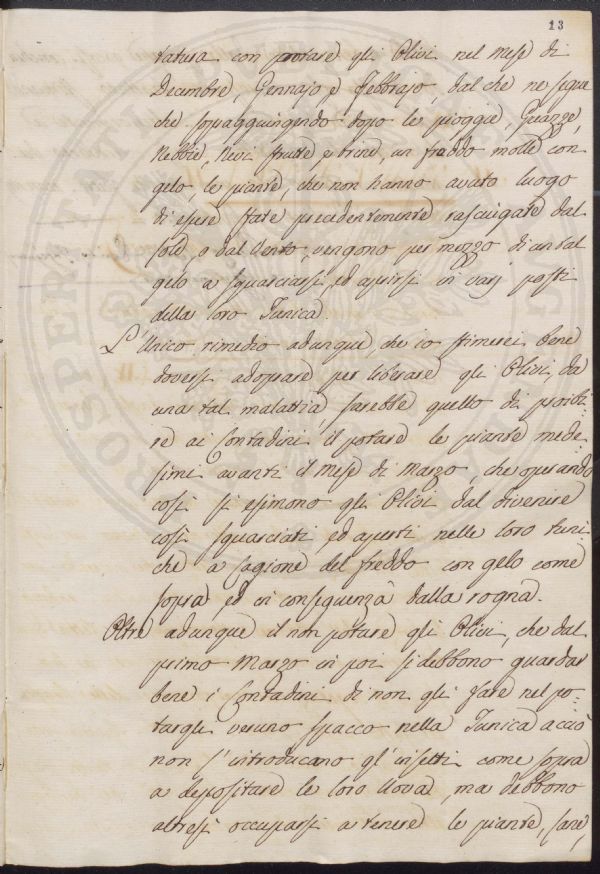 13
tatura con potare gli Olivi nel mese di
Decembre, Gennajo, e Febbrajo, dal che ne segue
che sopragguingendo dopo le pioggie, Guazze,
Nebbie, Nevi frutte, e brine, un freddo molle con
gelo, le piante, che non hanno avuto luogo
di essere state precedentemente rasciugate dal
sole, o dal Vento, vengono per mezzo di un tal
gelo a squasciarsi, ed aprirsi in varj posti
della loro Tunica.
L'Unico rimedio adunque, che io stimerei bene
doversi adoprare per liberare gli Olivi, da
una tal malattia sarebbe quello di proibi:
re ai Contadini il potare le piante mede:
simi avanti il mese di Marzo, che operando
così si esimono gli Olivi dal divenire
così squasciati, ed aperti nelle loro tuni:
che a cagione del freddo con gelo come
sopra, ed in conseguenza dalla rogna.
Oltre adunque il non potare gli Olivi, che dal
primo Marzo in poi si debbono guardar
bene i Contadini di non gli fare nel po:
targli veruno spacco nella Tunica acciò
non s'introducano gl'insetti come sopra
a depositare le loro Uova, ma debbono
altresì occuparsi a tenere le piante, sane,